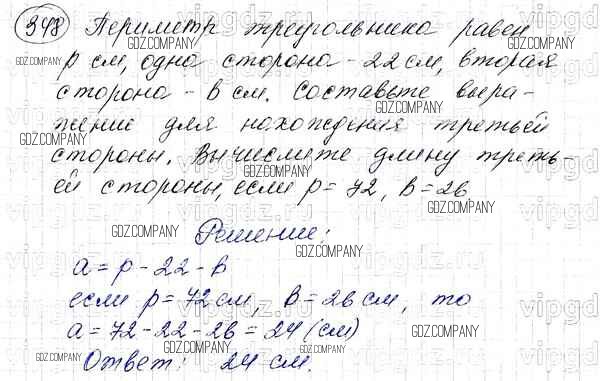 348 Периметр треугольника равен
p см, одна сторона - 22 см, вторая
сторона - b см. Составьте выра-
жение для нахождения третьей
стороны. Вычислите длину треть-
ей стороны, если p = 72, b = 26
Решение:
a = p - 22 - b
если p = 72 см, b = 26 см, то
a = 72 - 22 - 26 = 24 (см)
Ответ: 24 см.
GDZ.COMPANY
vipgdz.ru